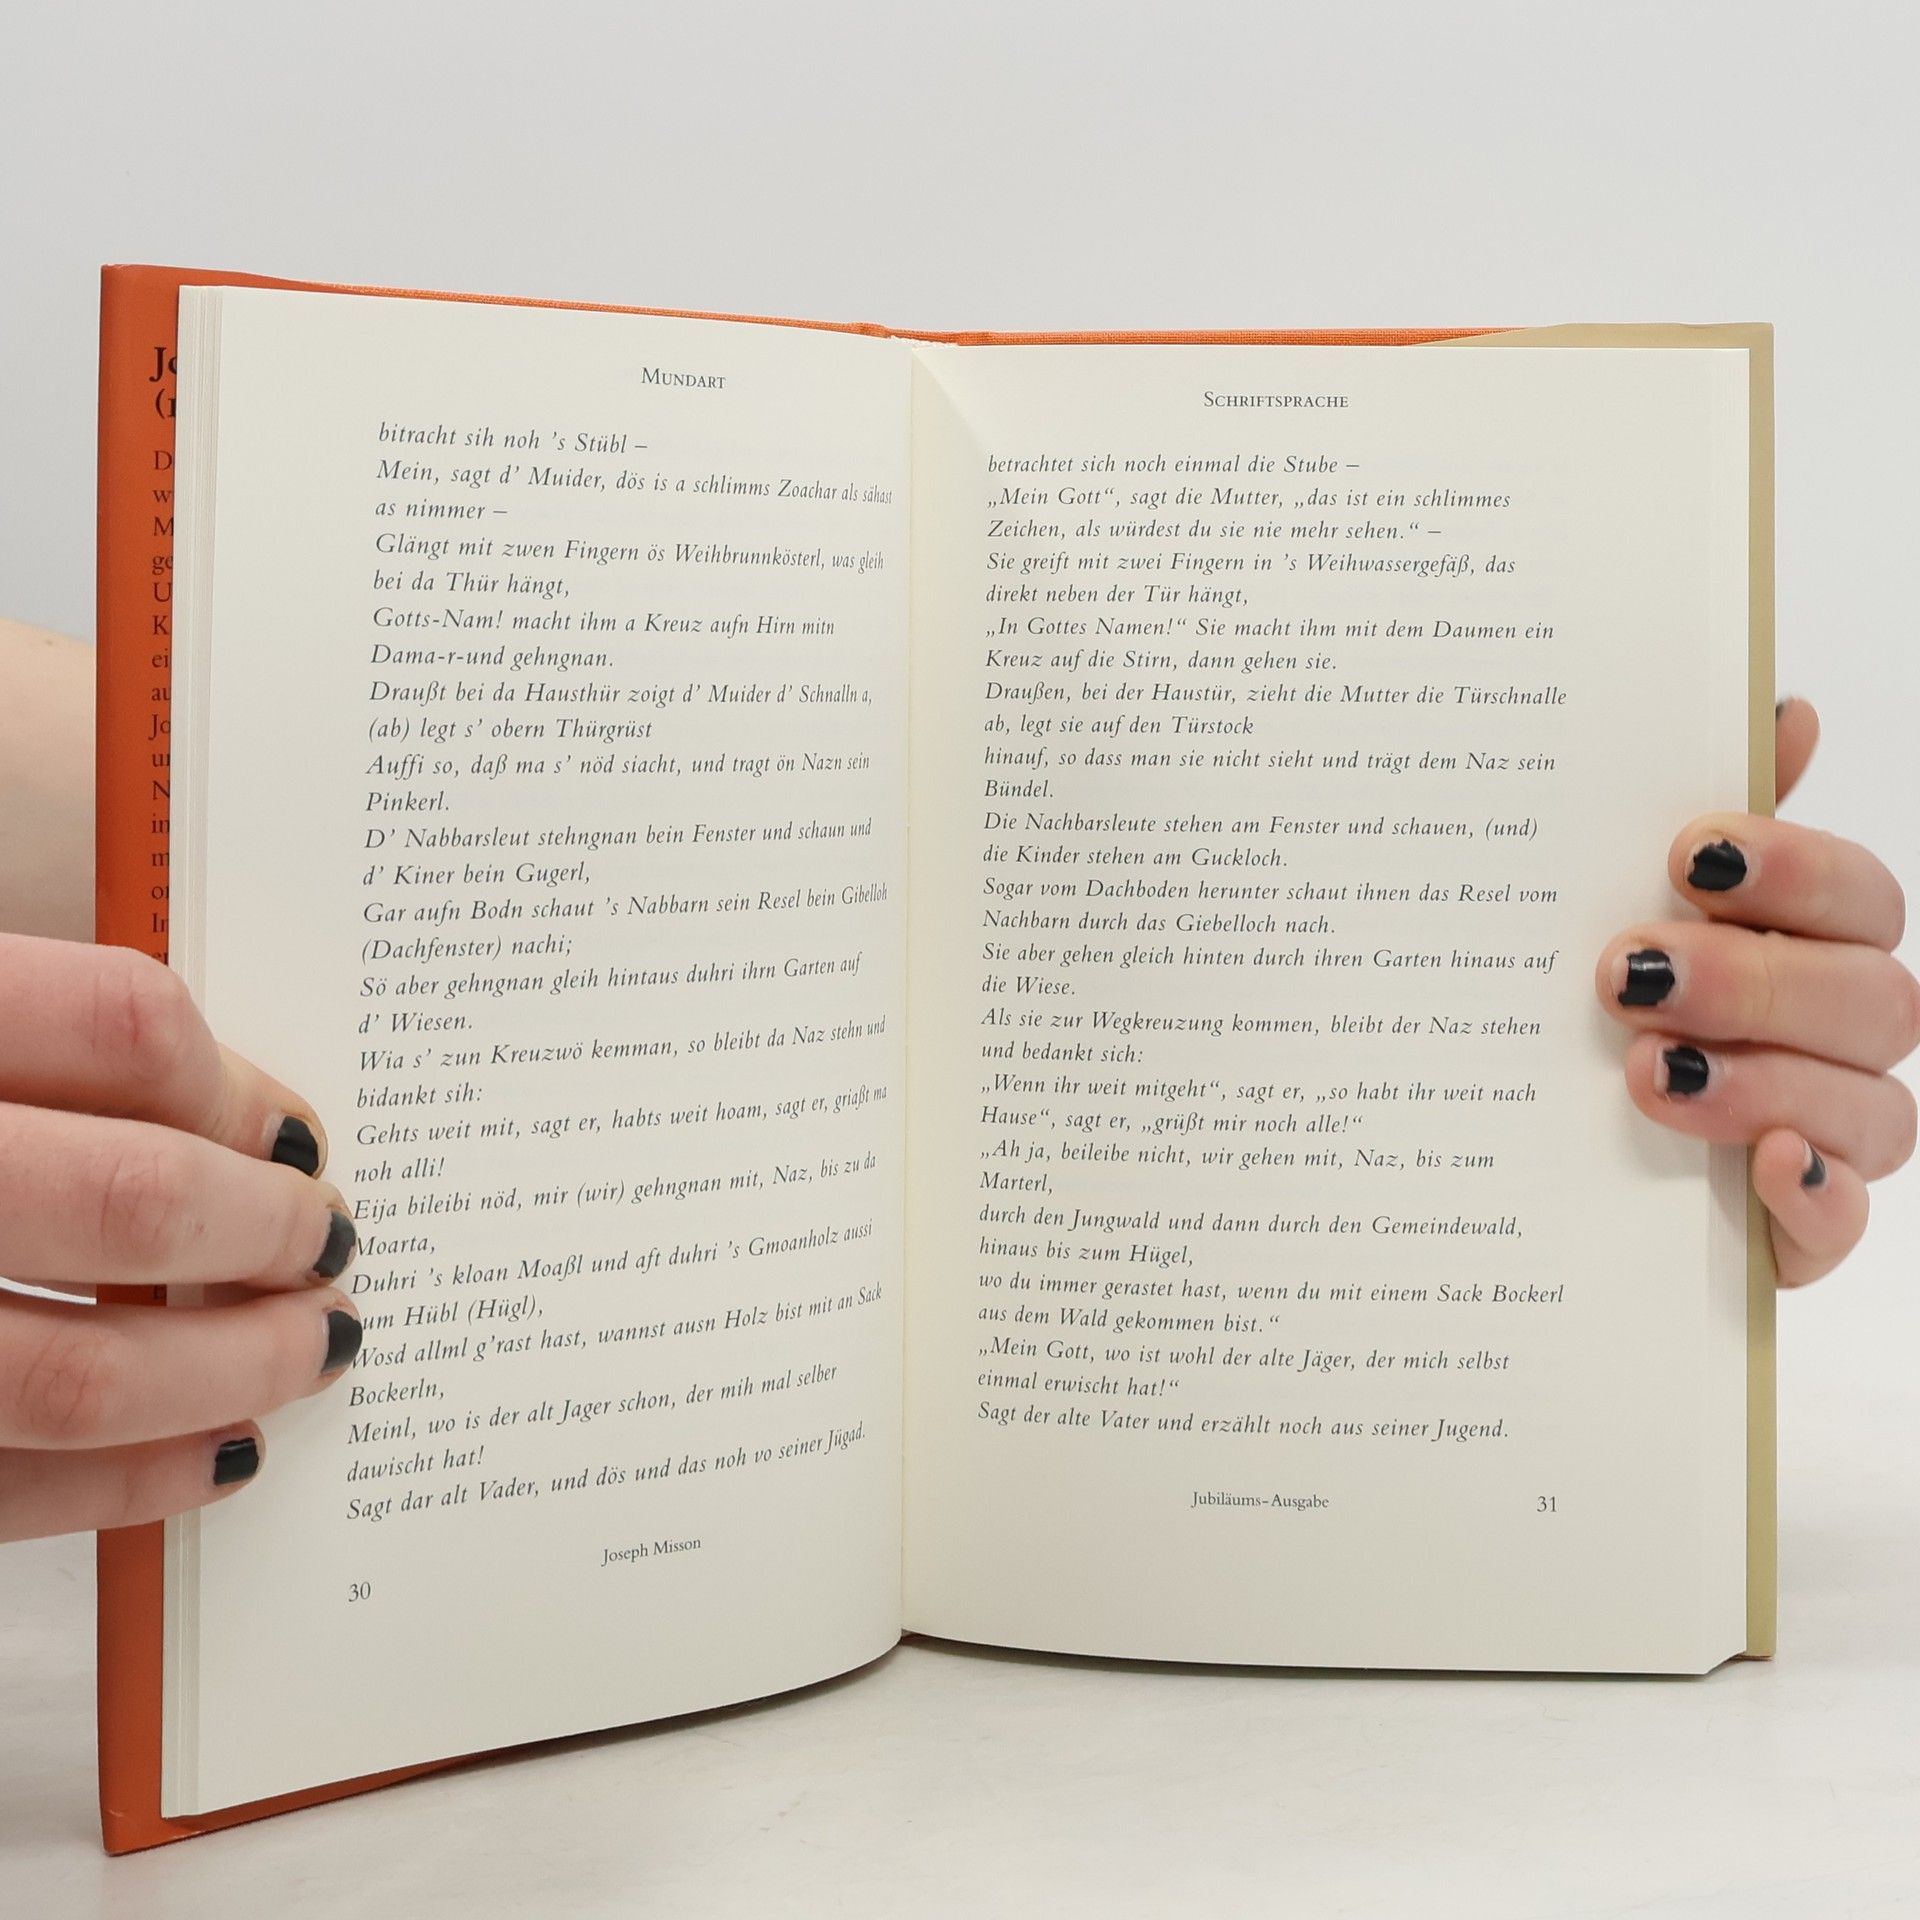 MUNDART
bitracht sih noh ’s Stübl –
Mein, sagt d’ Muider, dös is a schlimms Zoachar als sähast
as nimmer –
Glängt mit zwen Fingern ös Weihbrunnkösterl, was gleih
bei da Thür hängt,
Gotts-Nam! macht ihm a Kreuz aufn Hirn mitn
Dama-r-und gehngnan.
Draußt bei da Hausthür zoigt d’ Muider d’ Schnalln a,
(ab) legt s’ obern Thürgrüst
Auffi so, daß ma s’ nöd siacht, und tragt ön Nazn sein
Pinkerl.
D’ Nabbarsleut stehngnan bein Fenster und schaun und
d’ Kiner bein Gugerl,
Gar aufn Bodn schaut ’s Nabbarn sein Resel bein Gibelloh
(Dachfenster) nachi;
Sö aber gehngnan gleih hintaus duhri ihrn Garten auf
d’ Wiesen.
Wia s’ zun Kreuzwö kemman, so bleibt da Naz stehn und
bidankt sih:
Gehts weit mit, sagt er, habts weit hoam, sagt er, griaßt ma
noh alli!
Eija bileibi nöd, mir (wir) gehngnan mit, Naz, bis zu da
Moarta,
Duhri ’s kloan Moaßl und aft duhri ’s Gmoanholz aussi
um Hübl (Hügl),
Wosd allml g’rast hast, wannst ausn Holz bist mit an Sack
Bockerln,
Meinl, wo is der alt Jager schon, der mih mal selber
dawischt hat!
Sagt dar alt Vader, und dös und das noh vo seiner Jügad.
Joseph Misson
30
SCHRIFTSPRACHE
betrachtet sich noch einmal die Stube –
„Mein Gott“, sagt die Mutter, „das ist ein schlimmes
Zeichen, als würdest du sie nie mehr sehen.“ –
Sie greift mit zwei Fingern in ’s Weihwassergefäß, das
direkt neben der Tür hängt,
„In Gottes Namen!“ Sie macht ihm mit dem Daumen ein
Kreuz auf die Stirn, dann gehen sie.
Draußen, bei der Haustür, zieht die Mutter die Türschnalle
ab, legt sie auf den Türstock
hinauf, so dass man sie nicht sieht und trägt dem Naz sein
Bündel.
Die Nachbarsleute stehen am Fenster und schauen, (und)
die Kinder stehen am Guckloch.
Sogar vom Dachboden herunter schaut ihnen das Resel vom
Nachbarn durch das Giebelloch nach.
Sie aber gehen gleich hinten durch ihren Garten hinaus auf
die Wiese.
Als sie zur Wegkreuzung kommen, bleibt der Naz stehen
und bedankt sich:
„Wenn ihr weit mitgeht“, sagt er, „so habt ihr weit nach
Hause“, sagt er, „grüßt mir noch alle!“
„Ah ja, beileibe nicht, wir gehen mit, Naz, bis zum
Marterl,
durch den Jungwald und dann durch den Gemeindewald,
hinaus bis zum Hügel,
wo du immer gerastet hast, wenn du mit einem Sack Bockerl
aus dem Wald gekommen bist.“
„Mein Gott, wo ist wohl der alte Jäger, der mich selbst
einmal erwischt hat!“
Sagt der alte Vater und erzählt noch aus seiner Jugend.
Jubiläums-Ausgabe
31